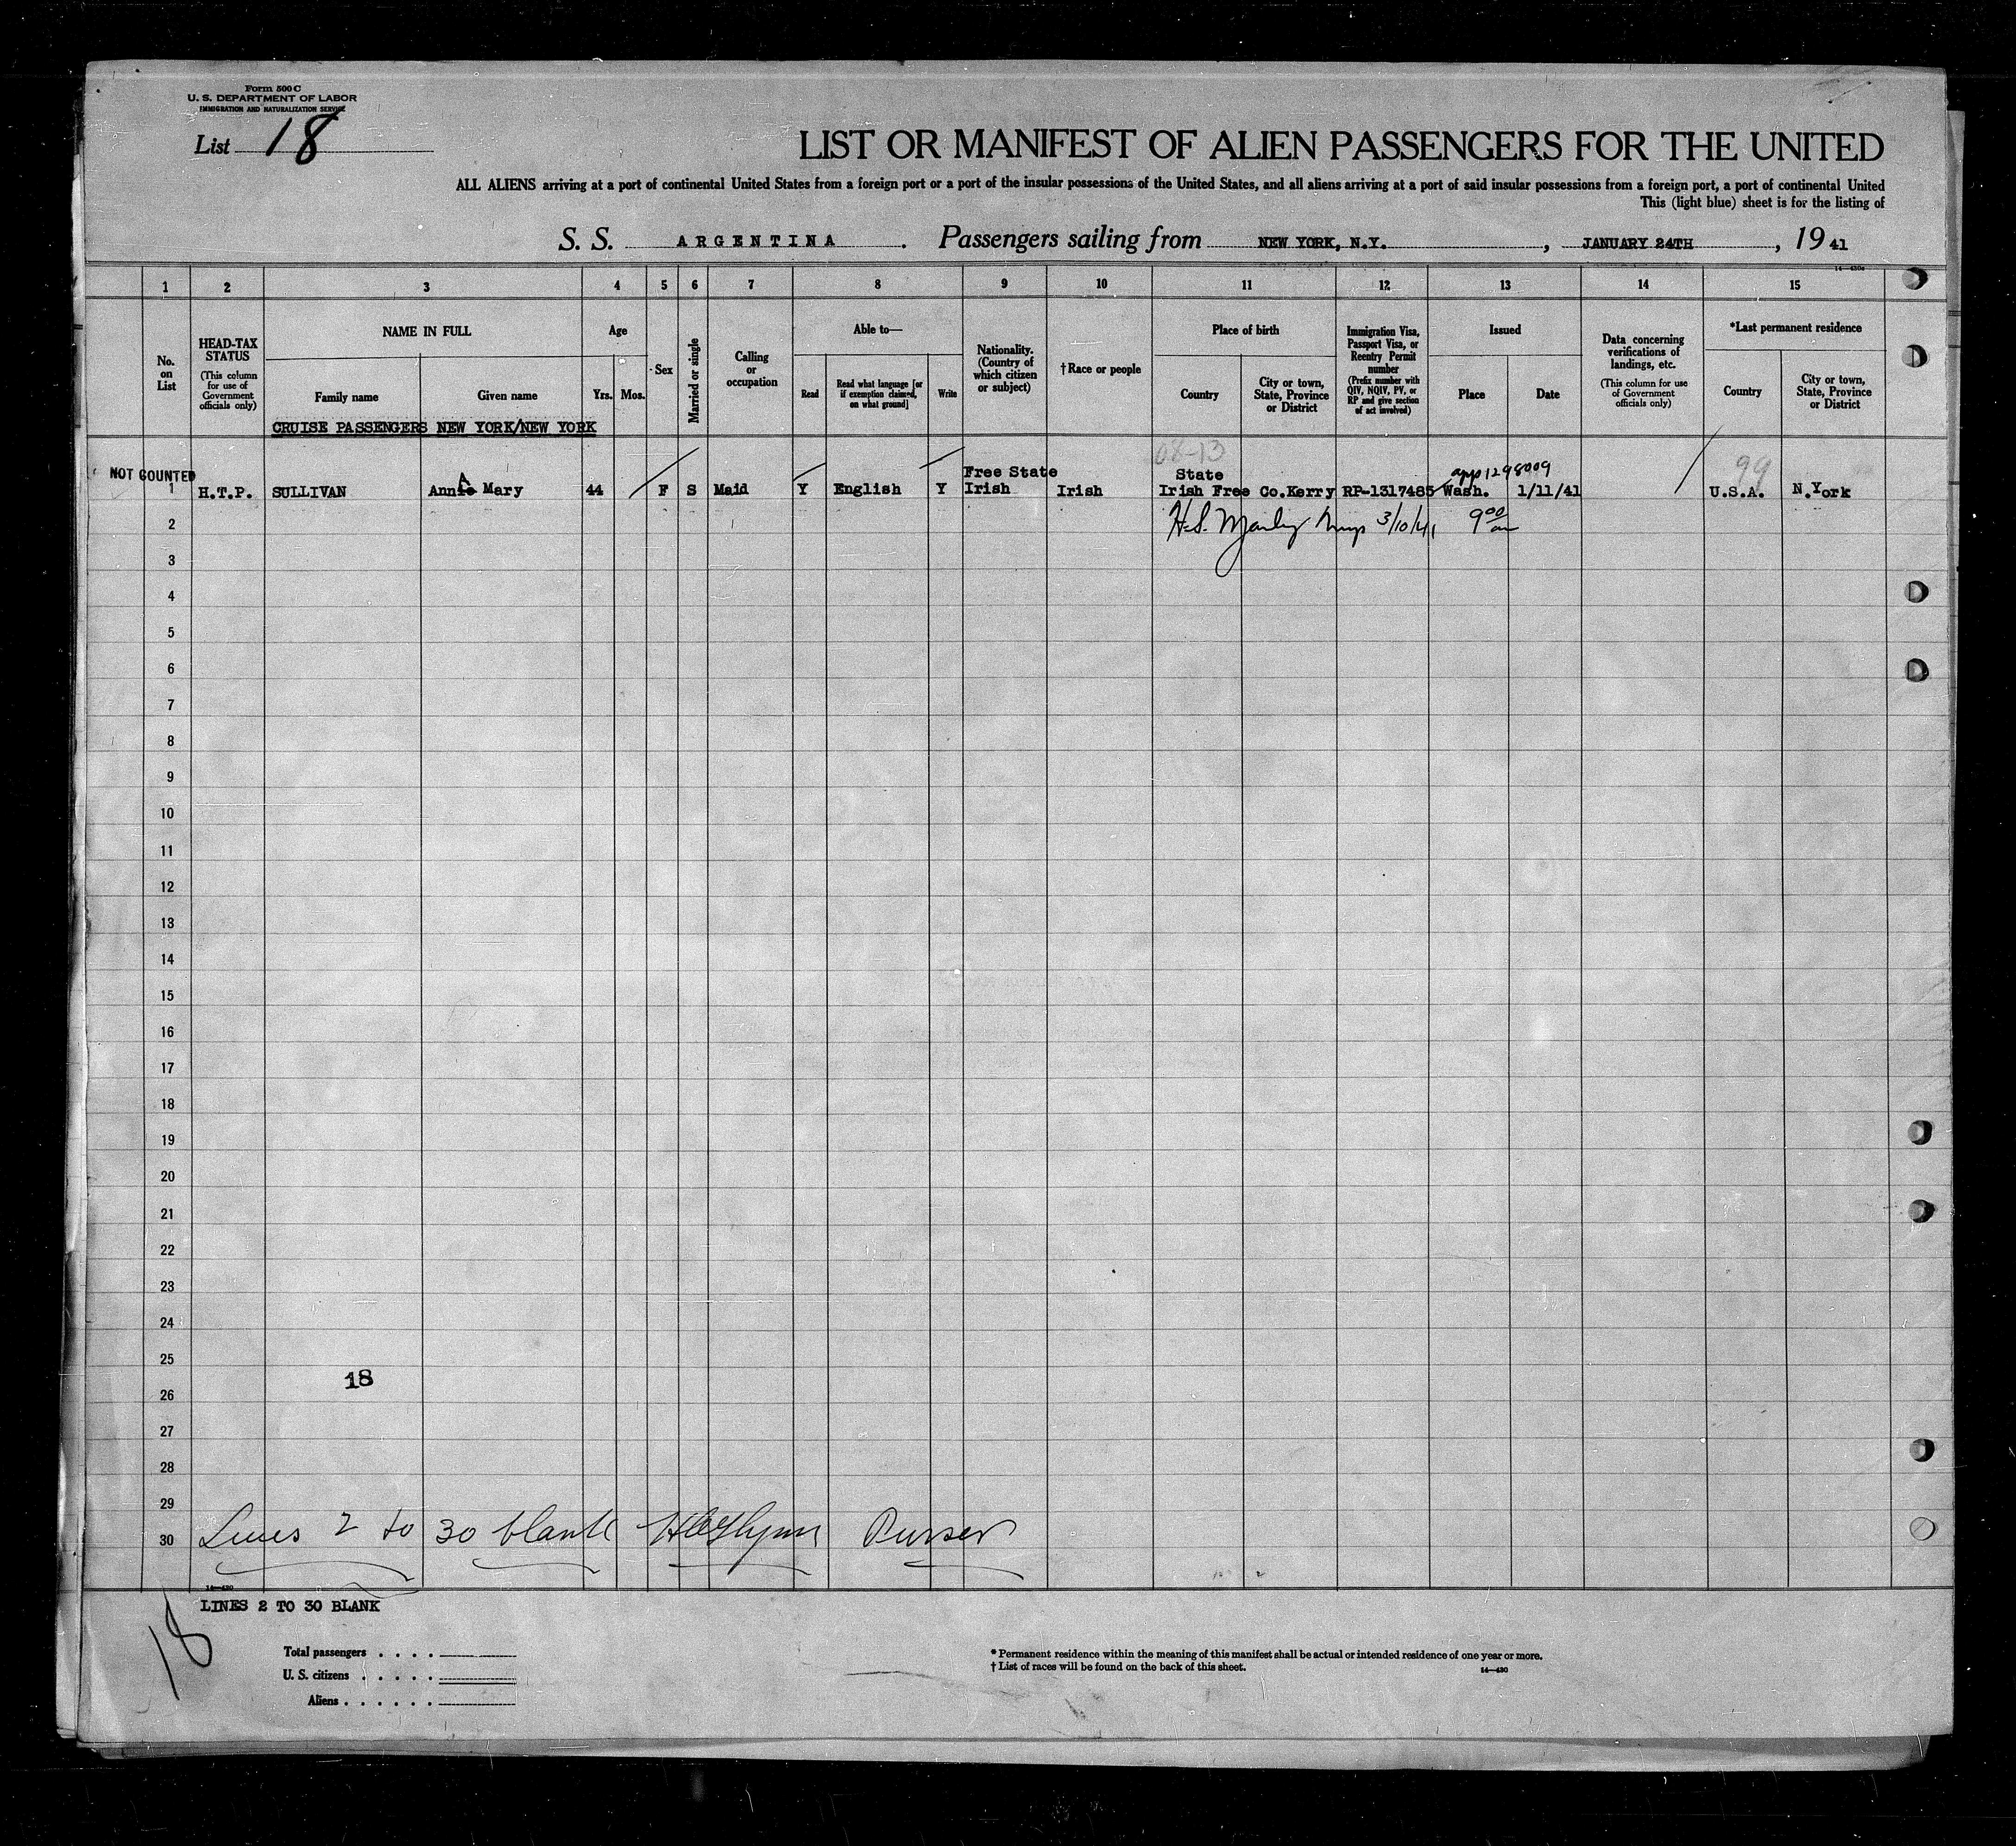 Form 500 C
U. S. DEPARTMENT OF LABOR
IMMIGRATION AND NATURALIZATION SERVICE
List 18
LIST OR MANIFEST OF ALIEN PASSENGERS FOR THE UNITED
ALL ALIENS arriving at a port of continental United States from a foreign port or a port of the insular possessions of the United States, and all aliens arriving at a port of said insular possessions from a foreign port, a port of continental United
This (light blue) sheet is for the listing of
S. S. ARGENTINA. Passengers sailing from NEW YORK, N.Y., JANUARY 24TH, 19 41
14—430c
1 2 3 4 5 6 7 8 9 10 11 12 13 14 15
No. on List
HEAD-TAX STATUS
(This column for use of Government officials only)
NAME IN FULL
Family name
Given name
Age
Yrs.
Mos.
Sex
Married or single
Calling or occupation
Able to—
Read
Read what language [or if exemption claimed, on what ground]
Write
Nationality. (Country of which citizen or subject)
†Race or people
Place of birth
Country
City or town, State, Province or District
Immigration Visa, Passport Visa, or Reentry Permit number
(Prefix number with QIV, NQIV, PV, or RP and give section of act involved)
Issued
Place
Date
Data concerning verifications of landings, etc.
(This column for use of Government officials only)
*Last permanent residence
Country
City or town, State, Province or District
CRUISE PASSENGERS NEW YORK/NEW YORK
08-13
Free State State app 1298009 99
NOT COUNTED
1 H.T.P. SULLIVAN Annie Mary 44 F S Maid Y English Y Irish Irish Irish Free Co.Kerry RP-1317485 Wash. 1/11/41 U.S.A. N.York
2 H.S. 3/10/41 9 00 am
3
4
5
6
7
8
9
10
11
12
13
14
15
16
17
18
19
20
21
22
23
24
25
18
26
27
28
29
30 Lines 2 to 30 blank Purser
14—430
LINES 2 TO 30 BLANK
18
Total passengers . . . .
U. S. citizens . . . . .
Aliens . . . . . .
* Permanent residence within the meaning of this manifest shall be actual or intended residence of one year or more.
† List of races will be found on the back of this sheet.
14—430